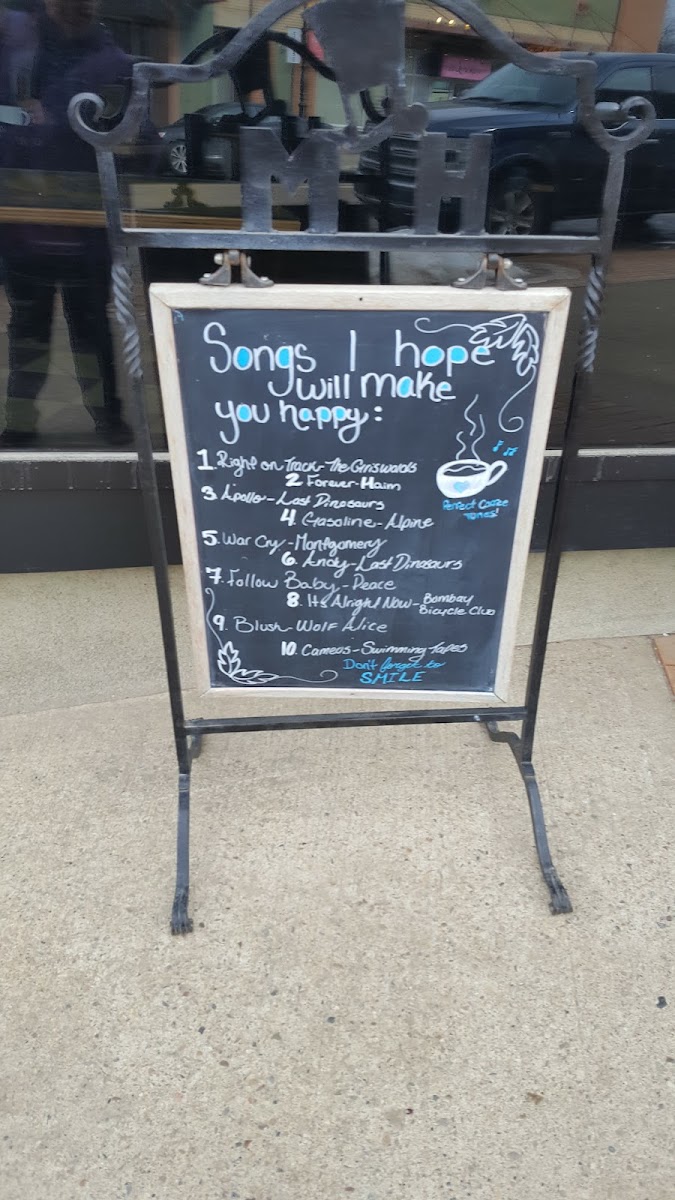 M H
Songs I hope
will make
you happy:
1. Right on Track-The Griswolds
2 Forever-Haim
3. Apollo-Last Dinosaurs
4. Gasoline-Alpine
5. War Cry-Montgomery
6. Andy-Last Dinosaurs
7. Follow Baby-Peace
8. Its Alright Now-Bombay
Bicycle Club
9. Blush-Wolf Alice
10. Cameos-Swimming Tapes
Perfect Coffee
Tunes!
Don't forget to
SMILE